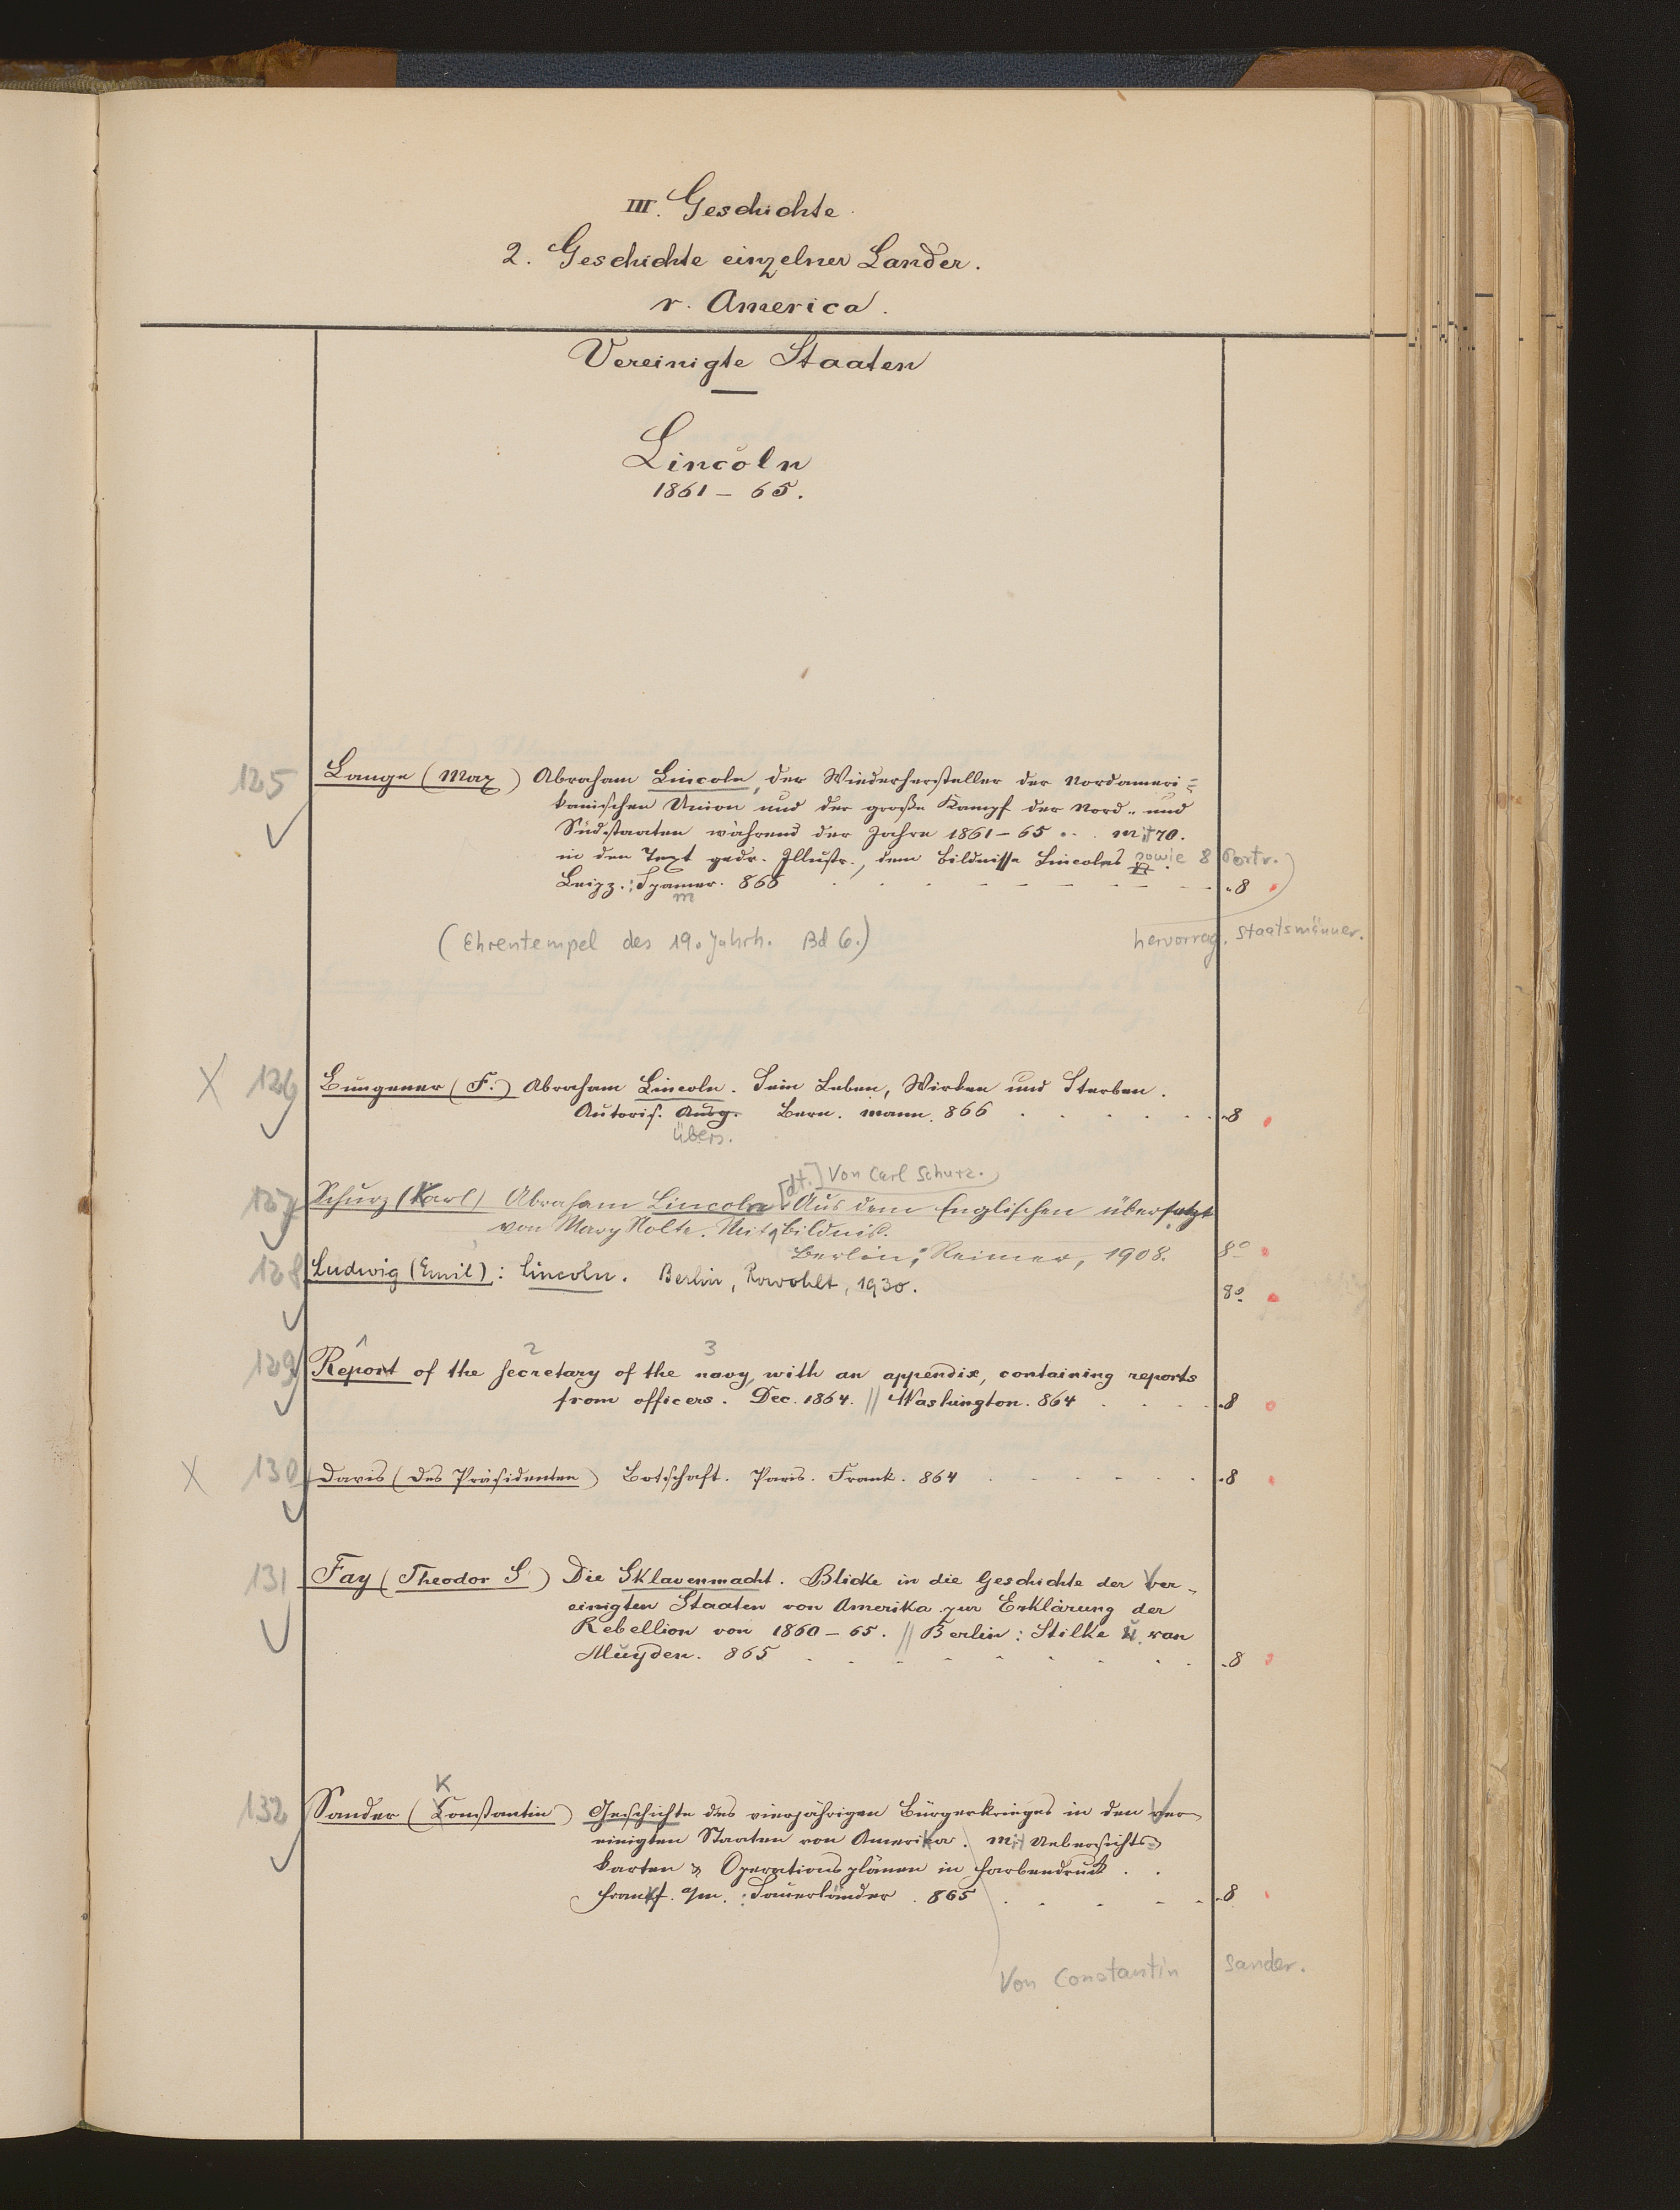 III. Geschichte
2. Geschichte einzelner Länder.
r. America.
Vereinigte Staaten
Lincoln
1861 – 65.
125 Lange (Max) Abraham Lincoln, der Wiederhersteller der Nordameri=
kanischen Union und der große Kampf der Nord- und
Südstaaten während der Jahre 1861–65 .. mit 70.
in den Text gedr. Illustr., dem Bildnisse Lincolns sowie 8 Portr.
Leipz.: Spamer. 866 - 8
m
(Ehrentempel des 19. Jahrh. Bd 6.) hervorrag. Staatsmänner.
X 126 Bungener (F.) Abraham Lincoln. Sein Leben, Wirken und Sterben.
Autoris. Ausg. Bern. Mann. 866 - 8
übers.
[dt.] Von Carl Schurz.
127 Schurz (Karl) Abraham Lincoln. Aus dem Englischen übersetzt
von Mary Nolte. Mit Bildnis.
Berlin: Reimer, 1908. 8°
128 Ludwig (Emil): Lincoln. Berlin, Rowohlt, 1930. 8°
1 2 3
129 Report of the secretary of the navy, with an appendix, containing reports
from officers. Dec. 1864. || Washington. 864 - 8
X 130 Davis (des Präsidenten) Botschaft. Paris. Frank. 864 - 8
131 Fay (Theodor S.) Die Sklavenmacht. Blicke in die Geschichte der Ver-
einigten Staaten von Amerika zur Erklärung der
Rebellion von 1860–65. || Berlin: Stilke u. van
Muyden. 865 - 8
K
132 Sander (Constantin) Geschichte des vierjährigen Bürgerkrieges in den Ver-
einigten Staaten von Amerika. Mit Uebersichts-
karten & Operationsplänen in Farbendruck.
Frankf. a/m.: Sauerländer. 865 - 8
Von Constantin Sander.